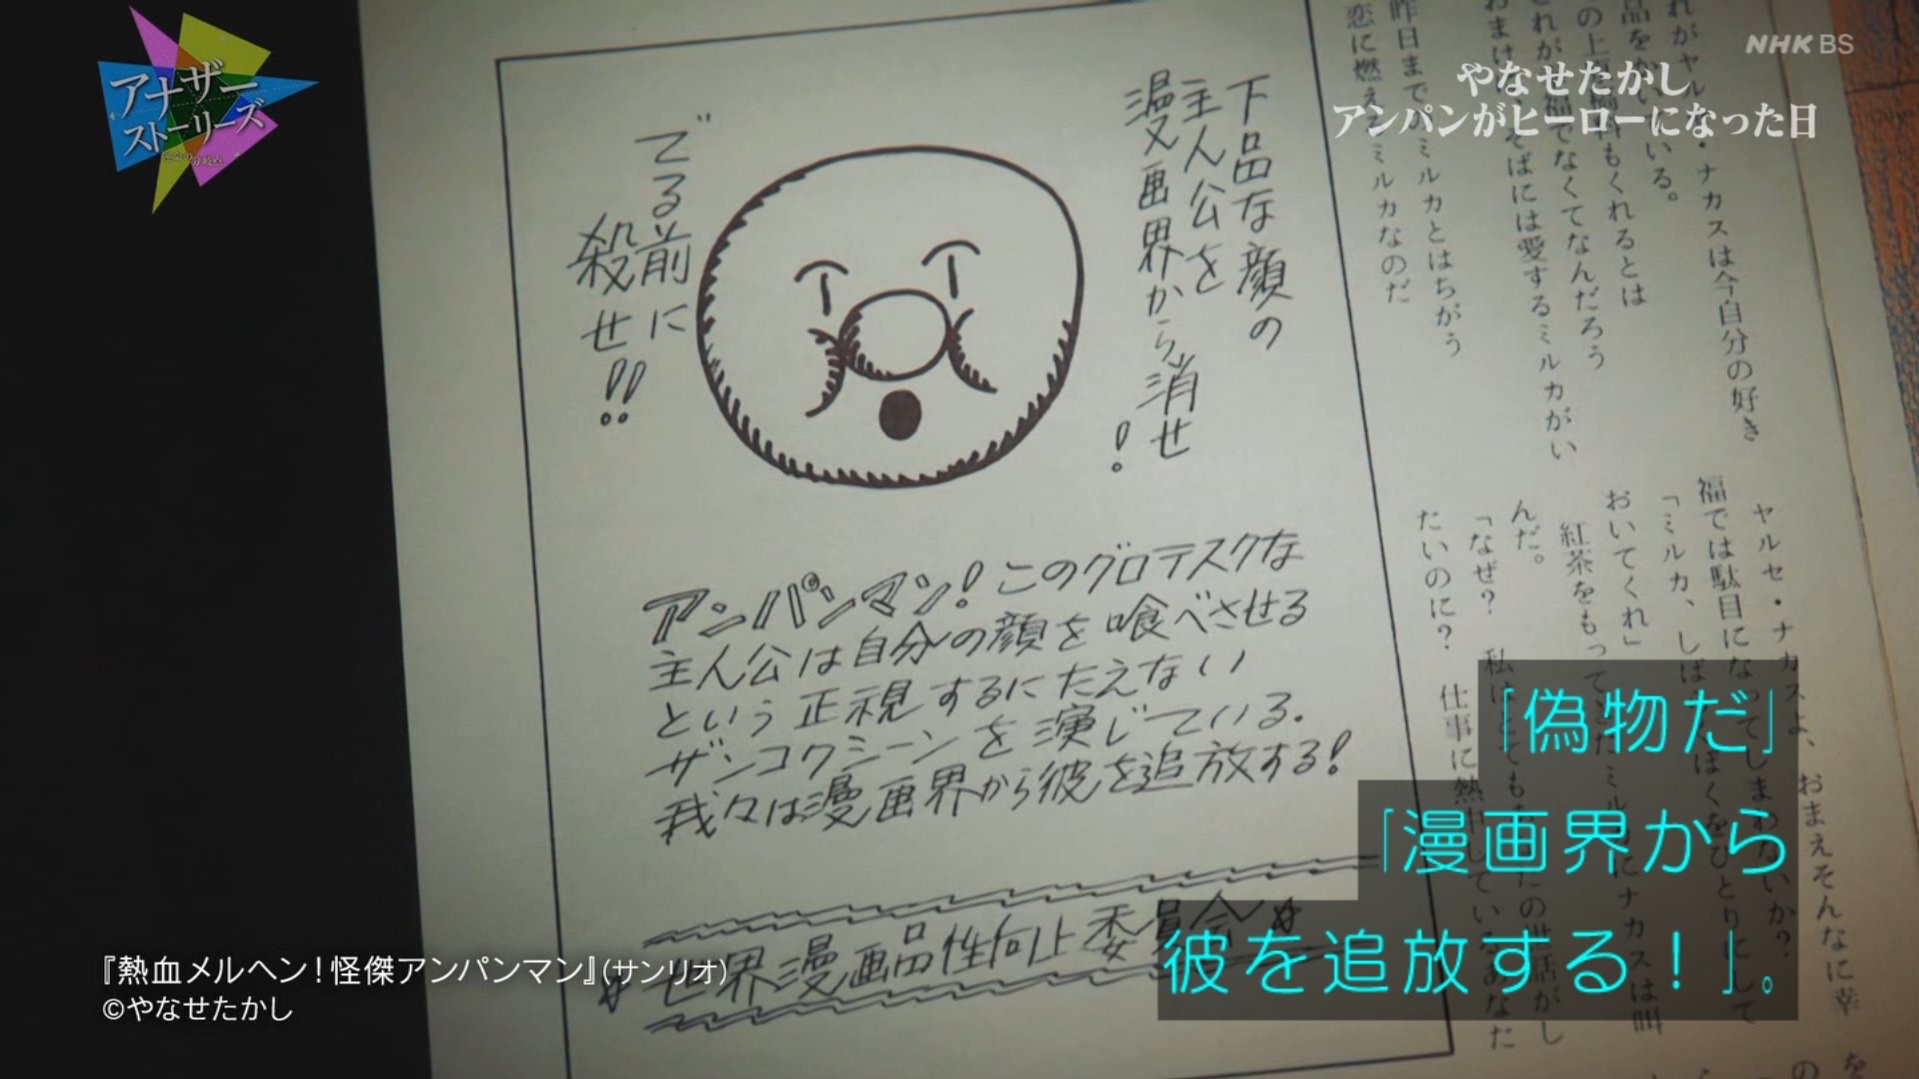 アナザー
ストーリーズ
NHK BS
やなせたかし
アンパンがヒーローになった日
下品な顔の
主人公を
漫画界から消せ!
でる前に
殺せ!!
アンパンマン!このグロテスクな
主人公は自分の顔を喰べさせる
という正視するにたえない
ザンコクシーンを演じている.
我々は漫画界から彼を追放する!
世界漫画品性向上委員会
ナカスは今自分の好き
いる。
もくれるとは
福でなくてなんだろう
そばには愛するミルカがい
昨日までのミルカとはちがう
恋に燃えるミルカなのだ
ヤルセ・ナカスよ、おまえそんなに幸
福では駄目になってしま
「ミルカ、しば
おいてくれ」
紅茶をもって
んだ。
「なぜ? 私は
たいのに? 仕事に熱中している
「偽物だ」
「漫画界から
彼を追放する!」。
『熱血メルヘン!怪傑アンパンマン』(サンリオ)
©やなせたかし